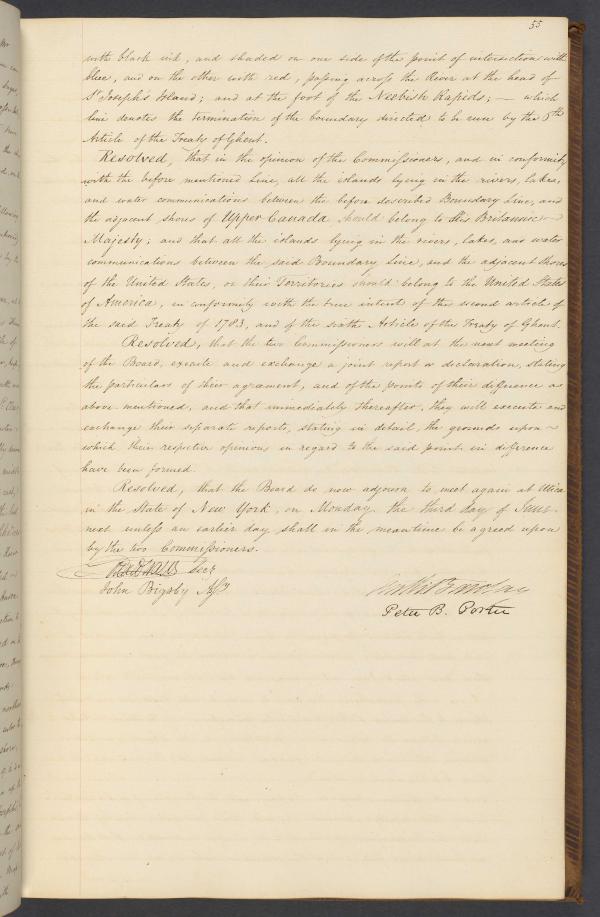 55
with black ink, and shaded on one side of the point of intersection with
blue, and on the other with red, passing across the River at the head of
St Joseph's Island; and at the foot of the Neebish Rapids; — which
line denotes the termination of the boundary directed to be run by the 6th
Article of the Treaty of Ghent.
Resolved, that in the opinion of the Commissioners, and in conformity
with the before mentioned Line, all the islands lying in the rivers, lakes,
and water communications between the before described Boundary Line, and
the adjacent shores of Upper Canada should belong to His Britannic
Majesty; and that all the islands lying in the rivers, lakes, and water
communications between the said Boundary Line, and the adjacent shores
of the United States, or their Territories should belong to the United States
of America, in conformity with the true intent of the second article of
the said Treaty of 1783, and of the sixth Article of the Treaty of Ghent.
Resolved, that the two Commissioners will at the next meeting
of the Board, execute and exchange a joint report or declaration, stating
the particulars of their agrement, and of the points of their difference as
above mentioned, and that immediately thereafter, they will execute and
exchange their separate reports, stating in detail, the grounds upon
which their respective opinions in regard to the said point in difference
have been formed.
Resolved, that the Board do now adjourn to meet again at Utica
in the State of New York, on Monday the third day of June
next unless an earlier day shall in the meantime be agreed upon
by the two Commissioners.
Secy
John Bigsby Asst
Peter B. Porter